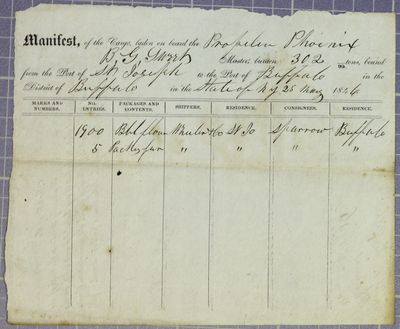 Manifest, of the Cargo, laden on board the Propeller Phoenix
B. G. Sweet Master, burden 302 95 tons, bound
from the Port of St Joseph to the Port of Buffalo in the
District of Buffalo in the State of NY 25 May 1846
MARKS AND NUMBERS. NO. ENTRIES. PACKAGES AND CONTENTS. SHIPPERS. RESIDENCE. CONSIGNEES. RESIDENCE.
1900 Bbl flour Wheeler &Co St Jo Sparrow Buffalo
5 Packs fur " " " "